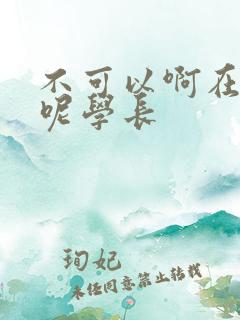 不可以啊在
呢學長
珣妃
未经同意禁止转载